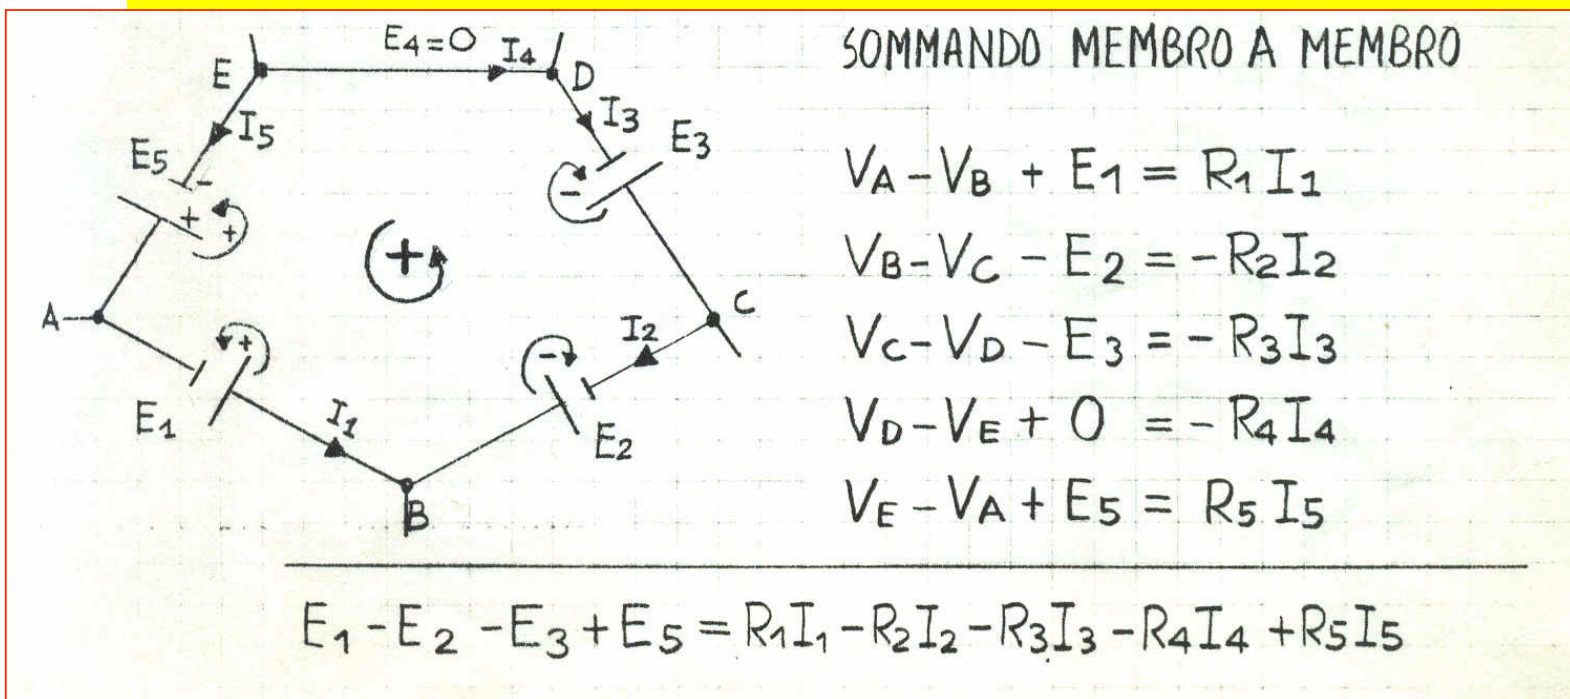 E4=0 I4
E D
I5 I3
E5 E3
-
+ + -
+
A C
I2
+ -
E1 I1 E2
B
SOMMANDO MEMBRO A MEMBRO
VA-VB + E1 = R1I1
VB-VC - E2 = -R2I2
VC-VD - E3 = -R3I3
VD-VE + 0 = -R4I4
VE-VA + E5 = R5I5
E1-E2-E3+E5 = R1I1-R2I2-R3I3-R4I4+R5I5